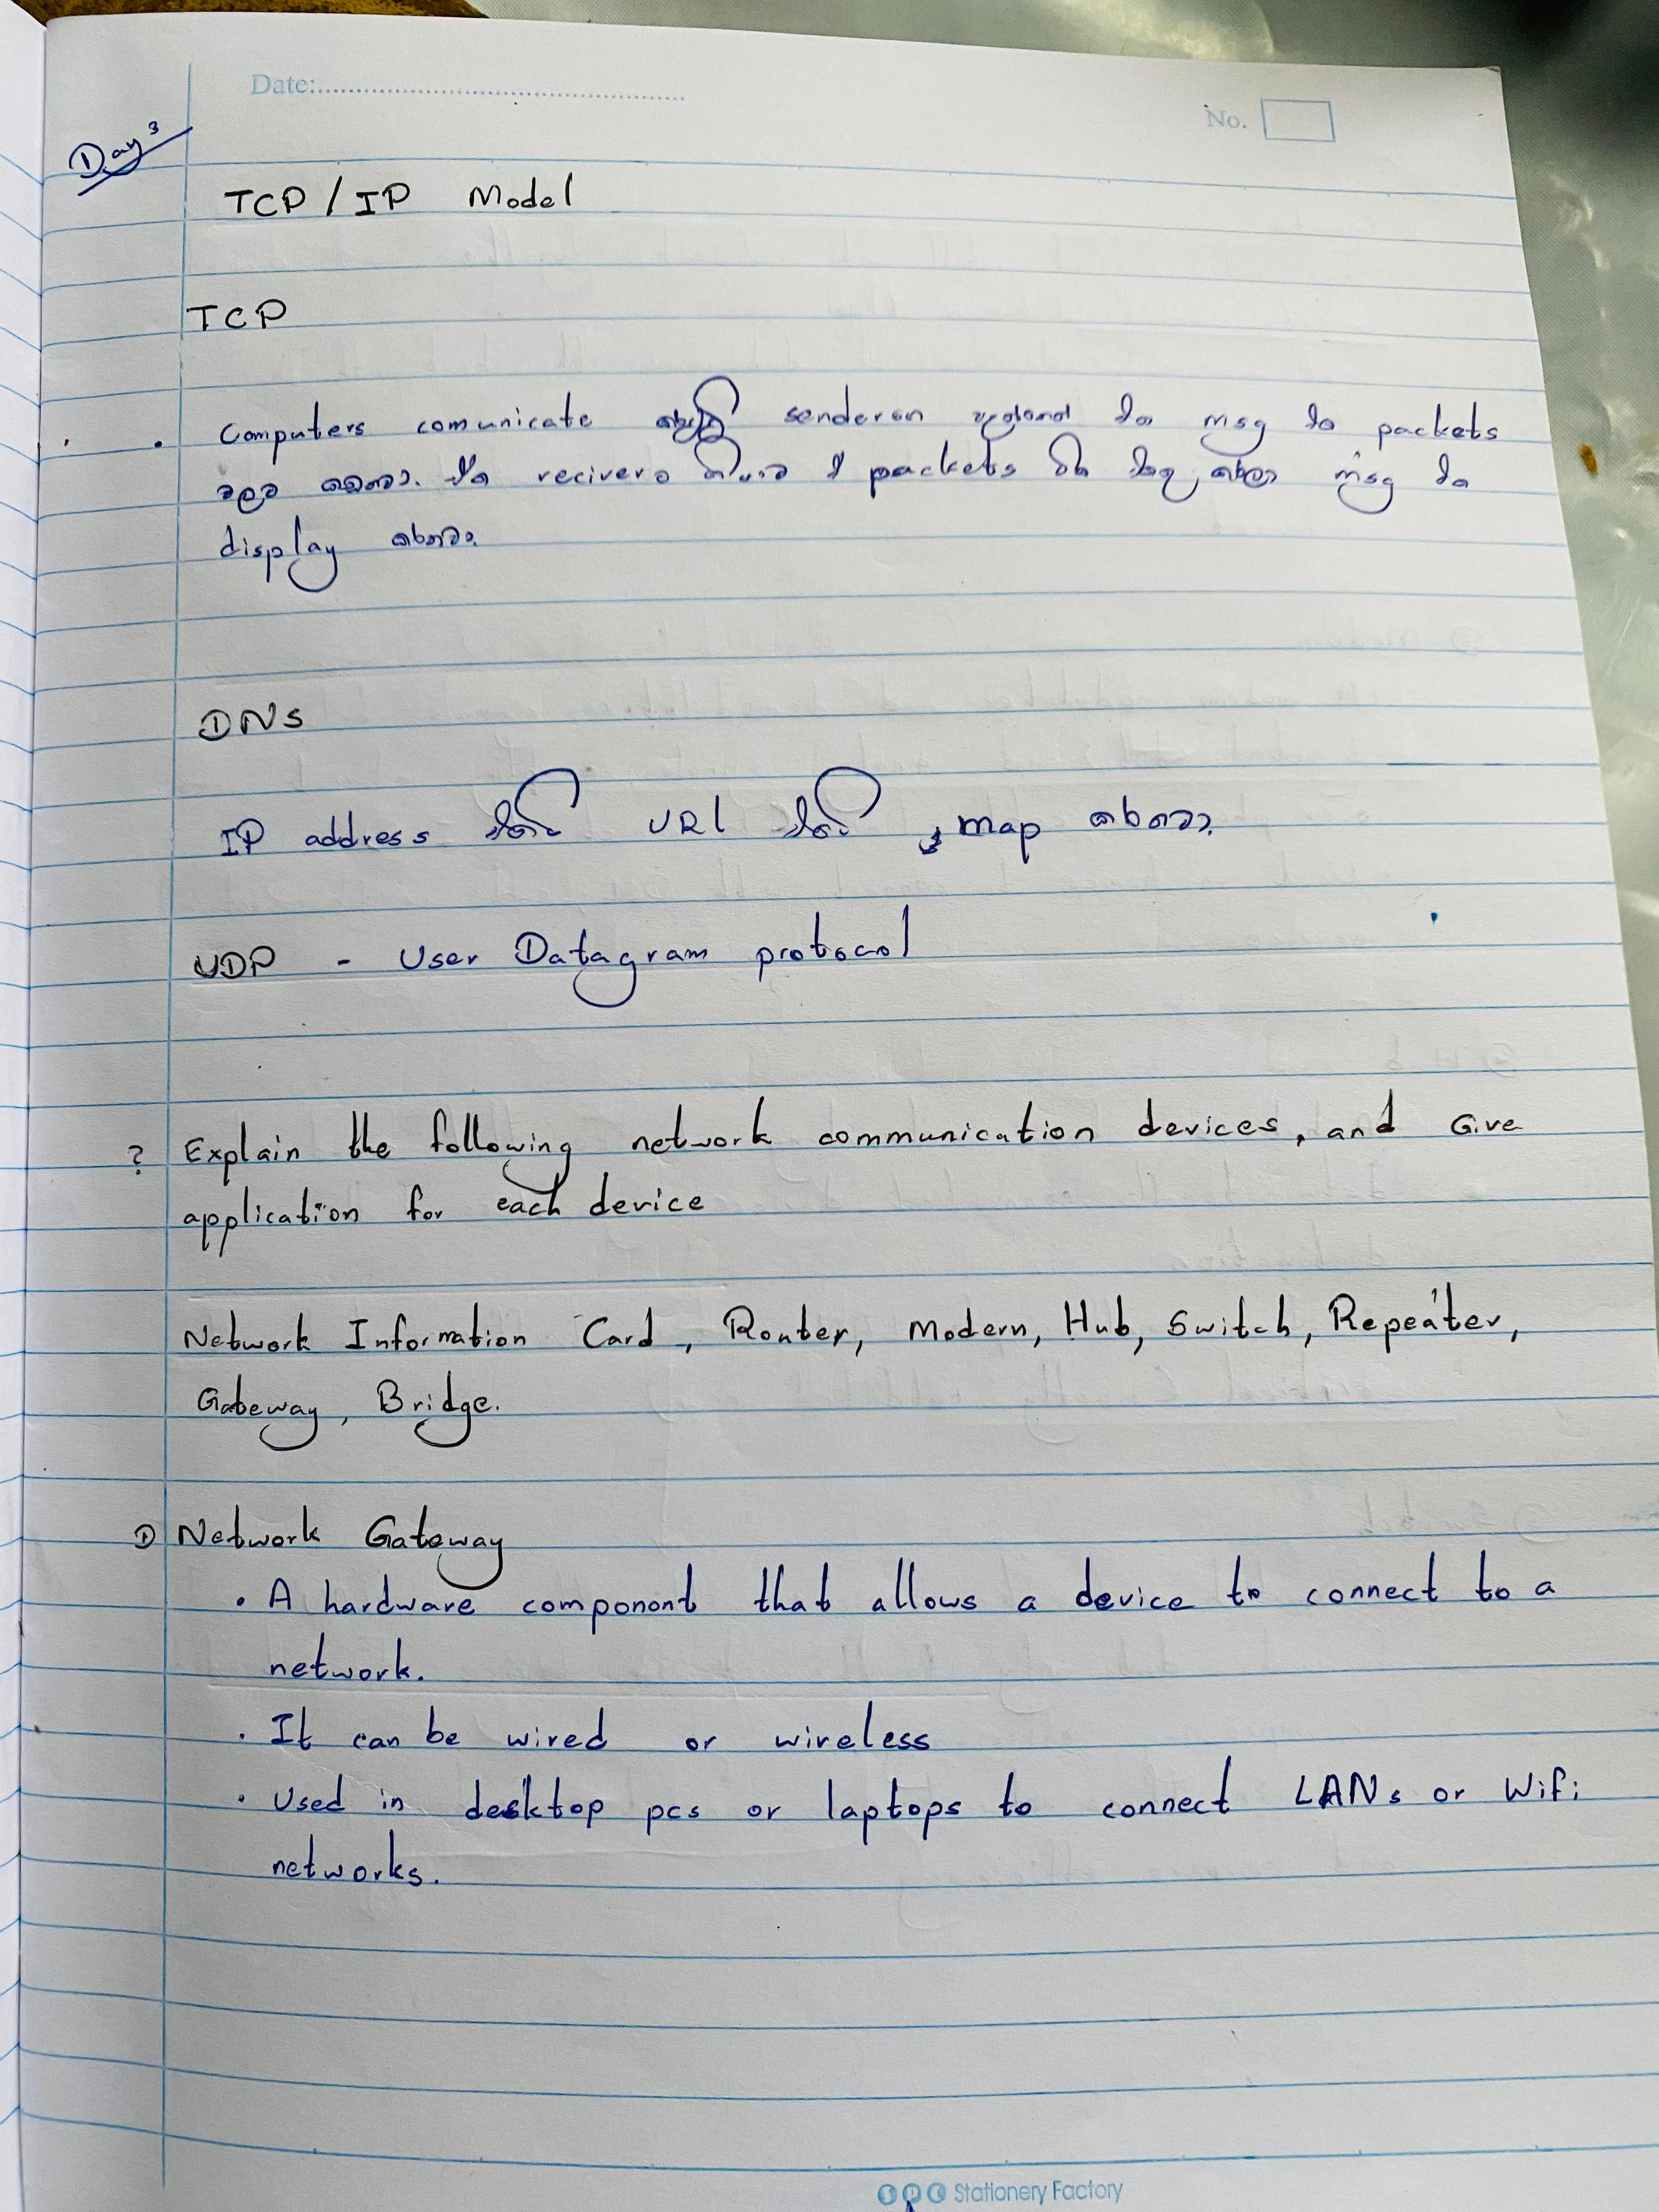 Date:
No.
Day 3
TCP / IP Model
TCP
. Computers comunicate කරද්දි senderගෙන එන msg එක packets
වලට කඩනවා. ඒක receiverට ගිහින් ඒ packets ටික එකතු කරලා msg එක
display කරනවා.
DNS
IP address එකයි URL එකයි map කරනවා.
UDP - User Datagram protocol
? Explain the following network communication devices, and Give
application for each device
Network Information Card, Router, Modem, Hub, Switch, Repeater,
Gateway, Bridge.
① Network Gateway
. A hardware componont that allows a device to connect to a
network.
. It can be wired or wireless
. Used in desktop pcs or laptops to connect LANs or Wifi
networks.
Stationery Factory